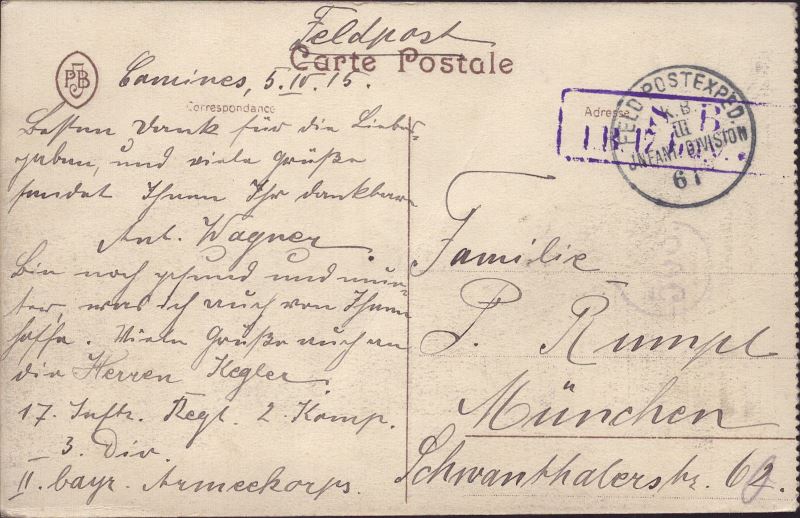 Feldpost
Carte Postale
PJB
Comines, 5.IV.15.
Correspondance
Besten Dank für die Liebes-
gaben, und viele Grüße
sendet Ihnen Ihr dankbarer
Ant. Wagner.
Bin noch gesund und mun-
ter, was ich auch von Ihnen
hoffe. Viele Grüße auch an
die Herren Kegler.
17. Inftr. Regt. 2. Komp.
3. Div.
II. bayr. Armeekorps.
Adresse
FELD-POSTEXPED.
K.B.
III
INFANT. DIVISION
Familie
P. Rumpl
München
Schwanthalerstr. 62